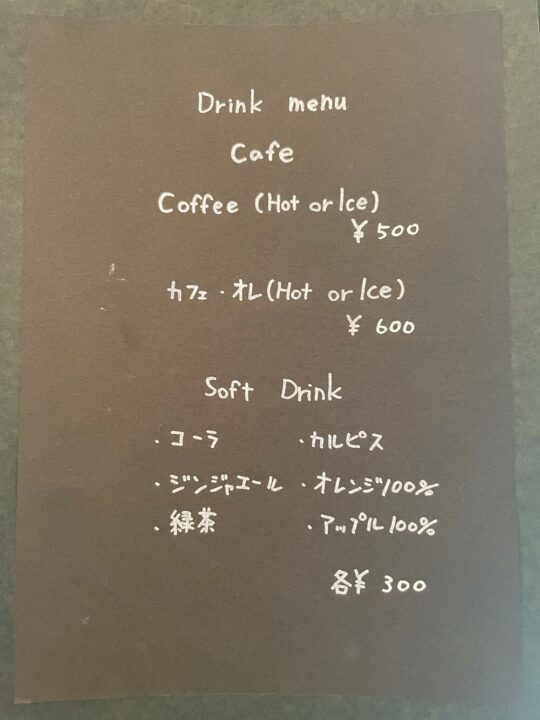 Drink menu
Cafe
Coffee (Hot or Ice)
¥ 500
カフェ・オレ(Hot or Ice)
¥ 600
Soft Drink
・コーラ ・カルピス
・ジンジャエール ・オレンジ100%
・緑茶 ・アップル100%
各¥ 300